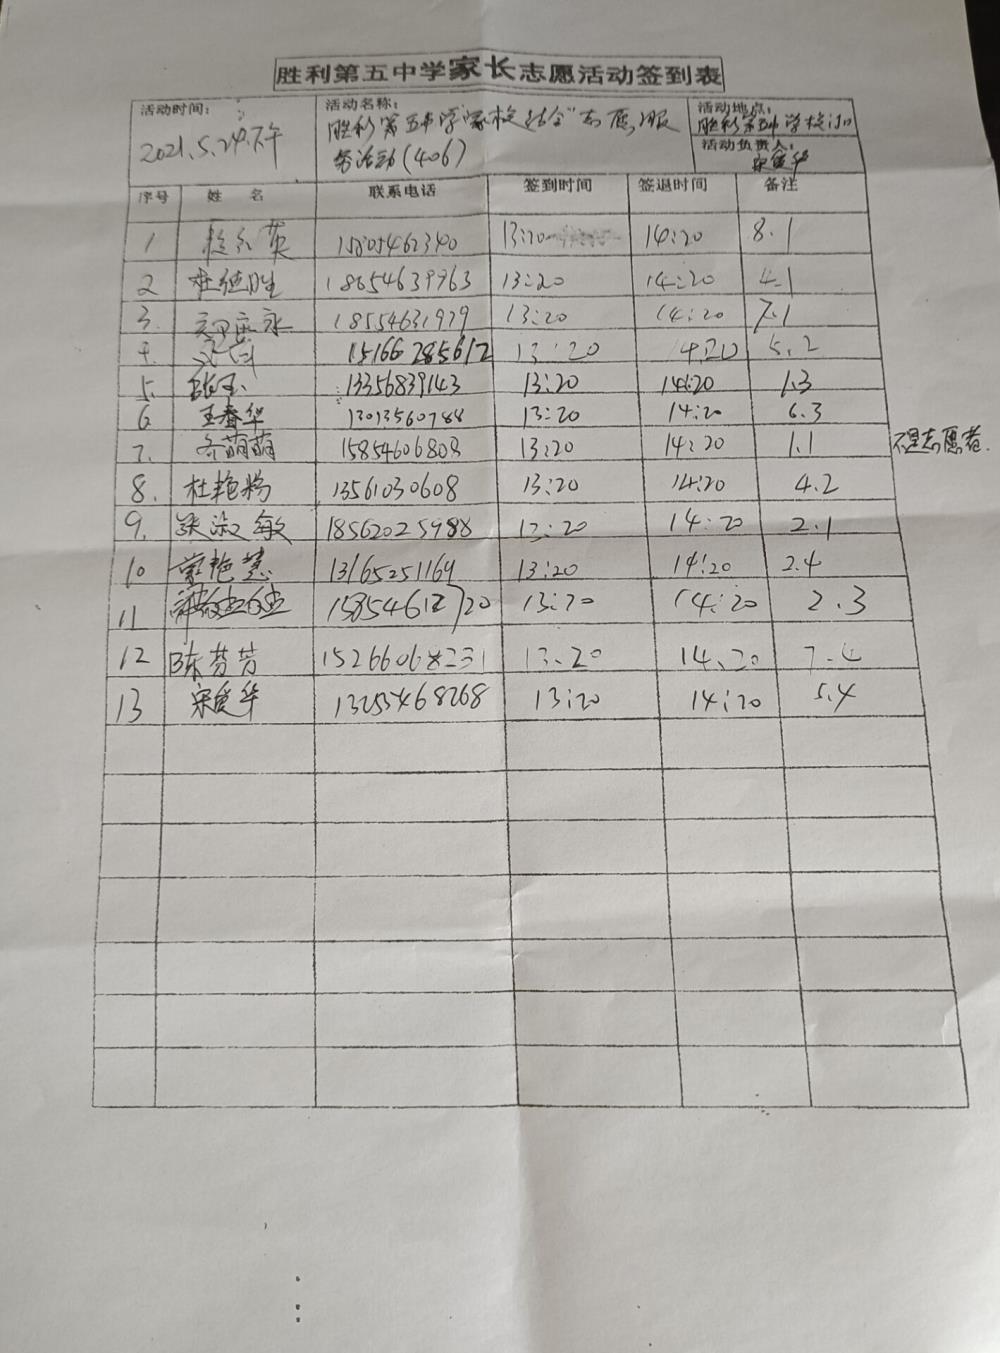 胜利第五中学家长志愿活动签到表
活动时间： 活动名称： 活动地点：
2021.5.24.下午 胜利第五中学"家校结合"志愿服 胜利第五中学校门口
务活动(406) 活动负责人：
宋爱华
序号 姓 名 联系电话 签到时间 签退时间 备注
1 英 13:20 14:20 8.1
2 杜德胜 18654639963 13:20 14:20 4.1
3. 永 18554631979 13:20 14:20 7.1
4. 15166285612 13:20 14:20 5.2
5. 13356839143 13:20 14:20 1.3
6 王春华 13013560788 13:20 14:20 6.3
7. 冬萌萌 15854606808 13:20 14:20 1.1 不是志愿者.
8. 杜艳粉 13561030608 13:20 14:20 4.2
9. 淑敏 18562025988 13:20 14:20 2.1
10 艳慧 13165251169 13:20 14:20 2.4
11 15854612720 13:20 14:20 2.3
12 陈芳芳 13.20 14.20
13 宋爱华 13255468268 13:20 14:20 5.4